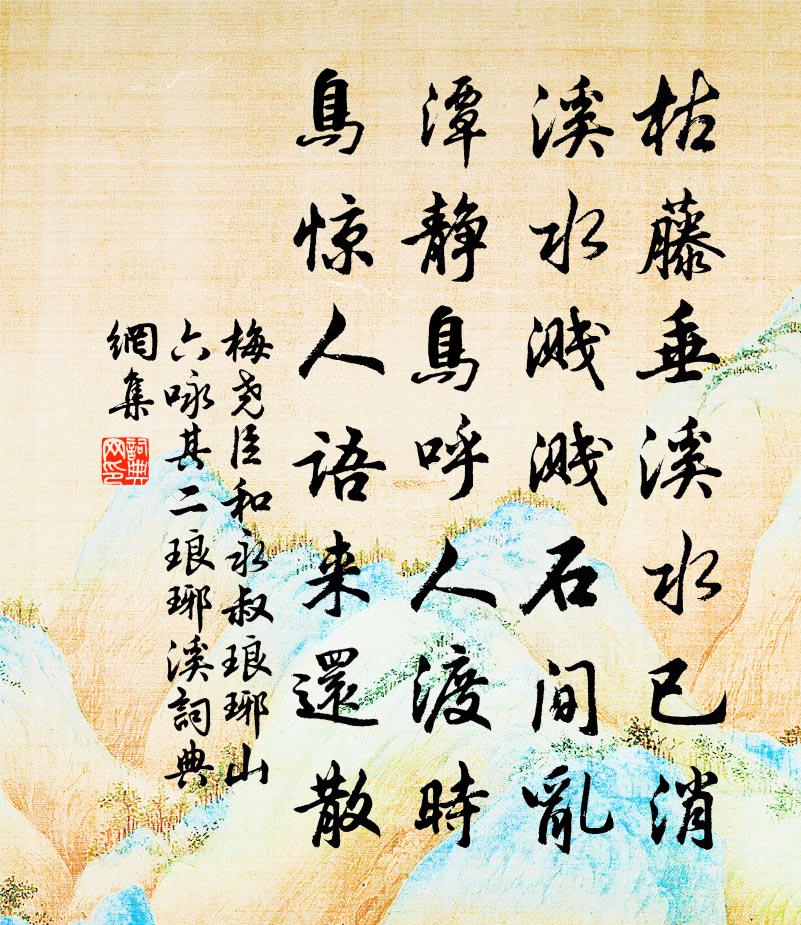 枯藤垂溪水已消
溪水溅溅石间亂
潭静鳥呼人渡時
鳥惊人语来還散
梅尧臣和永叔琅琊山
六咏其二琅琊溪詞典
網集
詞典網印